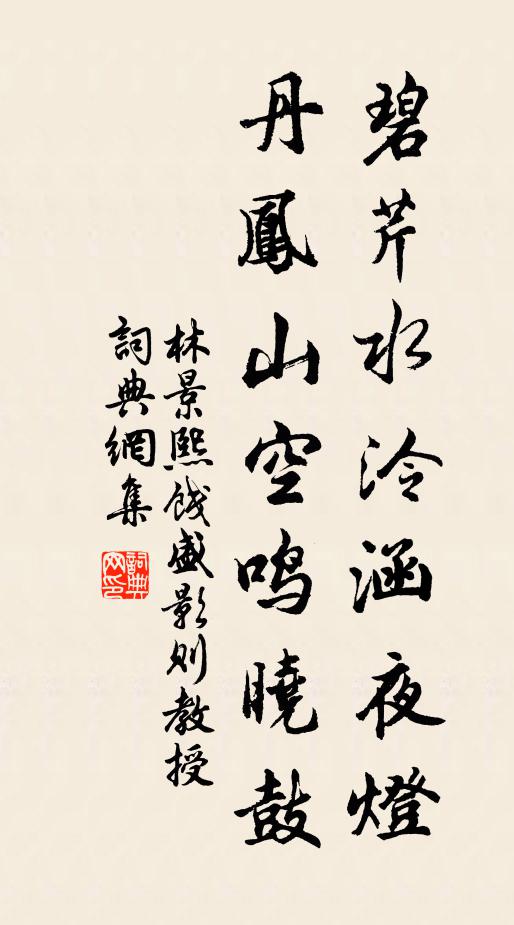 碧芹水泠涵夜燈
丹鳳山空鳴曉鼓
林景熙餞盛影則教授
詞典網集
詞典網印